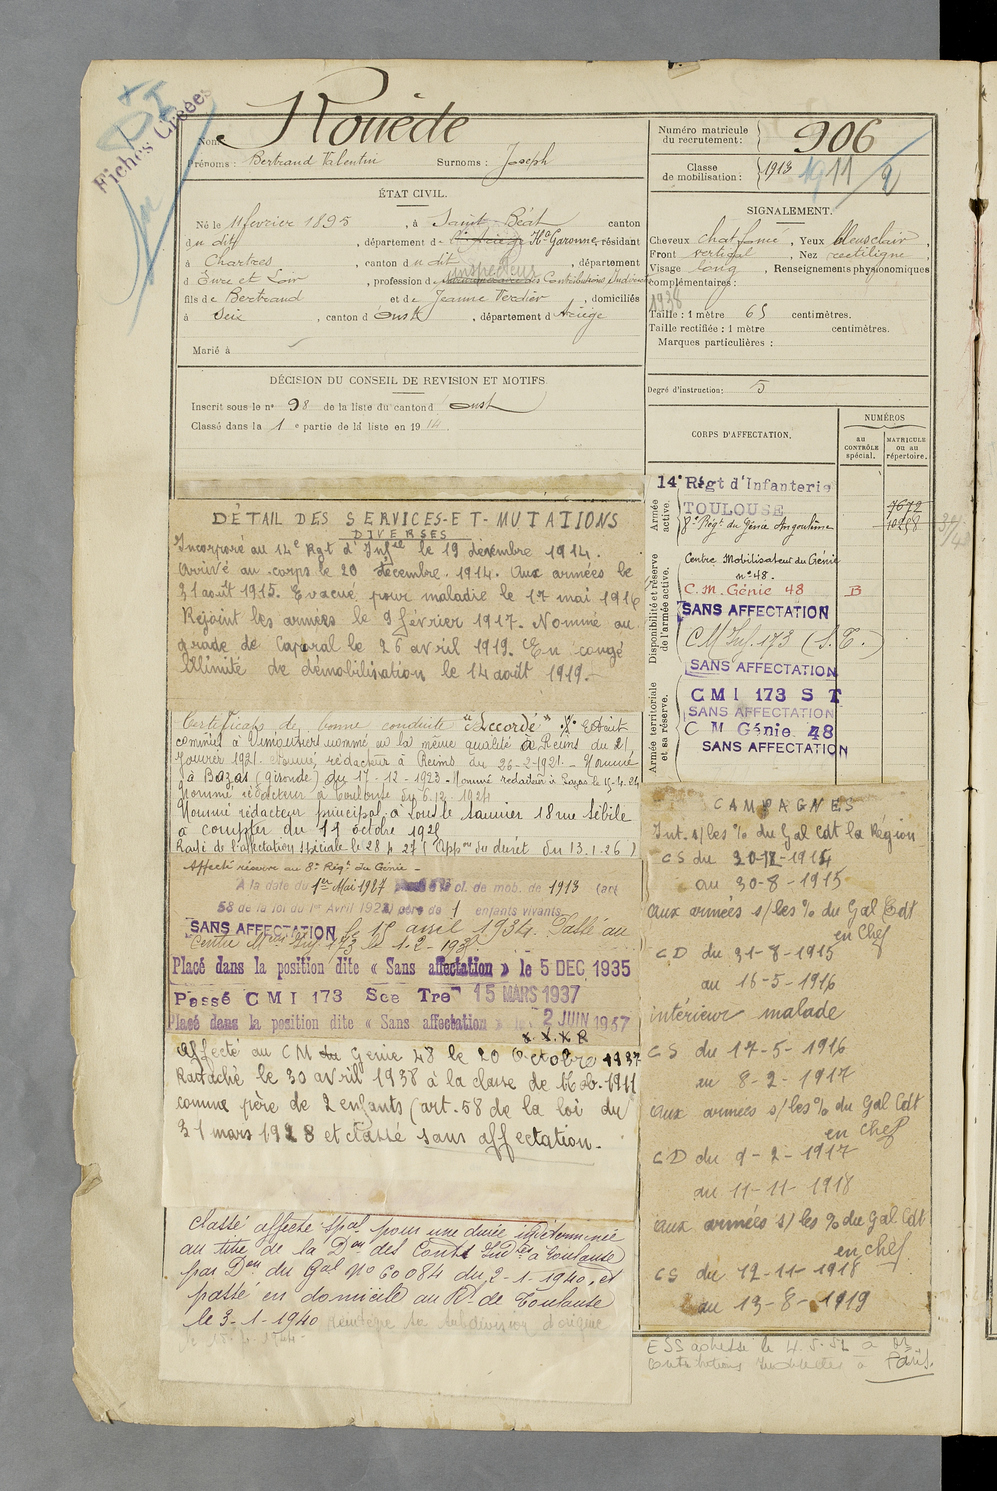 Fiches Créées
Nom : Rouède
Prénoms : Bertrand Valentin Surnoms : Joseph
Numéro matricule du recrutement : 906
Classe de mobilisation : 1913 1911/2
ÉTAT CIVIL.
Né le 11 fevrier 1895, à Saint-Béat canton
du dit, département de l'Ariège Hte Garonne, résidant
à Chartres, canton du dit, département
d'Eure et Loir, profession d inspecteur des Contributions Indirectes
fils de Bertrand et de Jeanne Verdier, domiciliés
à Seix, canton d'Oust, département d'Ariège
Marié à
SIGNALEMENT.
Cheveux chat foncé, Yeux bleus clair,
Front vertical, Nez rectiligne,
Visage long, Renseignements physionomiques
complémentaires :
1938
Taille : 1 mètre 65 centimètres.
Taille rectifiée : 1 mètre centimètres.
Marques particulières :
DÉCISION DU CONSEIL DE REVISION ET MOTIFS.
Inscrit sous le n° 98 de la liste du canton d'Oust
Classé dans la 1e partie de la liste en 1914.
Degré d'instruction : 5
CORPS D'AFFECTATION.
NUMÉROS
au CONTRÔLE spécial.
MATRICULE ou au répertoire.
Armée active.
14e Régt d'Infanterie
TOULOUSE
7672
8e Régt du Génie Angoulême
10258
Disponibilité et réserve de l'armée active.
Centre Mobilisateur du Génie
n° 48.
C.M. Génie 48 B
SANS AFFECTATION
CM Inf. 173 (S.T.)
SANS AFFECTATION
Armée territoriale et sa réserve.
CMI 173 S T
SANS AFFECTATION
C M Génie 48
SANS AFFECTATION
DÉTAIL DES SERVICES-ET-MUTATIONS
DIVERSES
Incorporé au 14e Rgt d'Infie le 19 décembre 1914.
Arrivé au corps le 20 décembre 1914. Aux armées le
31 août 1915. Evacué pour maladie le 17 mai 1916
Rejoint les armées le 9 février 1917. Nommé au
grade de Caporal le 26 avril 1919. En congé
illimité de démobilisation le 14 août 1919.-
Certificat de bonne conduite "Accordé".
commis à nommé en la même qualité à Reims du 21
Janvier 1921. nommé rédacteur à Reims du 26-2-1921. - Nommé
à Bazas (Gironde) du 17-12-1923 - Nommé rédacteur à
Nommé rédacteur à Toulouse du 6.12.1924
Nommé rédacteur principal à Lons le Saunier 18 rue Sébile
à compter du 11 octobre 1926
Rayé de l'affectation spéciale le 28
Affecté réserve au 8e Régt du Génie -
A la date du 1er Mai 1927 cl. de mob. de 1913 (art
58 de la loi du 1er Avril 1923) père de 1 enfants vivants
SANS AFFECTATION le 15 avril 1934. Passé au
Centre Mteur Inf. 173 le 1-2-193
Placé dans la position dite « Sans affectation » le 5 DEC 1935
Passé C M I 173 Sce Tre 15 MARS 1937
Placé dans la position dite « Sans affectation » le 2 JUIN 1937
Affecté au CM du Genie 48 le 20 Octobre 1937
Rattaché le 30 avril 1938 à la classe de Mob. 1911
comme père de 2 enfants (art. 58 de la loi du
31 mars 1928 et classé sans affectation.
Classé affecté spal pour une durée indéterminée
au titre de la Don des Conts Indtes à Toulouse
par Don du Gal No 60084 du 2-1-1940, et
passé en domicile au Rt de Toulouse
le 3-1-1940 réintègre sa subdivision d'origine
CAMPAGNES
Int. s/les % du Gal Cdt la Région
CS du 20-12-1914
au 30-8-1915
aux armées s/les % du Gal Cdt
en chef
CD du 31-8-1915
au 16-5-1916
intérieur malade
CS du 17-5-1916
au 8-2-1917
aux armées s/les % du Gal Cdt
en chef
CD du 9-2-1917
au 11-11-1918
aux armées s/les % du Gal Cdt
en chef
CS du 12-11-1918
au 13-8-1919
Contributions Indirectes à Paris.